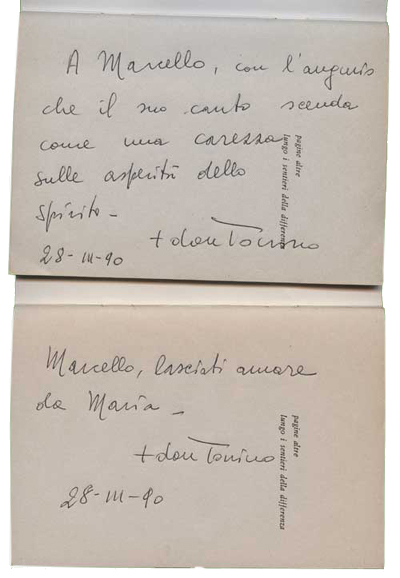 A Marcello, con l'augurio
che il suo canto scenda
come una carezza
sulle asperità dello
Spirito -
+ don Tonino
28-III-90
pagine altre
lungo i sentieri della differenza
Marcello, lasciati amare
da Maria -
+ don Tonino
28-III-90
pagine altre
lungo i sentieri della differenza